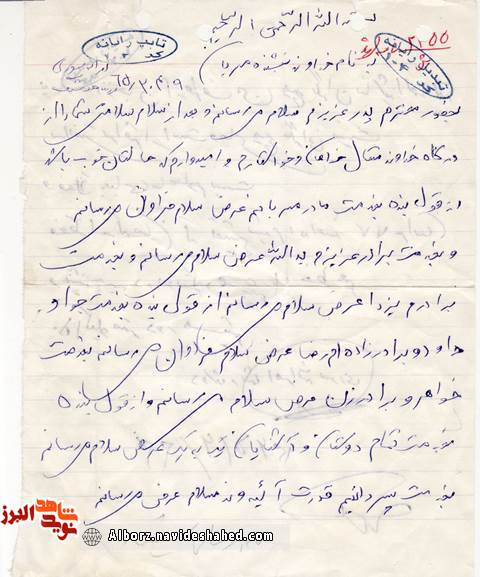 بسم الله الرحمن الرحیم
بنام خداوند بخشنده مهربان
تایید رایانه
تایید رایانه
۶۵/۳/۰۹
بحضور محترم پدر عزیزم سلام می رسانم و بعد از سلام سلامتی شما را از
درگاه خداوند متعال خواهان و خواستارم و امیدوارم که حالتان خوب باشد
از قول بنده بخدمت مادر مهربانم عرض سلام فراوان می رسانم
و بخدمت برادر عزیزم یدالله عرض سلام می رسانم و بخدمت
برادرم یزدا عرض سلام می رسانم از قول بنده بخدمت جواد و
و دو برادرزاده ام رضا عرض سلام فراوان می رسانم بخدمت
خواهر و برادر زن عرض سلام می رسانم و از قول بنده
بخدمت تمام دوستان و آشنایان عرض سلام می رسانم
بخدمت پسر دائیم قدرت عرض سلام می رسانم
شاهد
نوید
البرز
Alborz.navideshahed.com